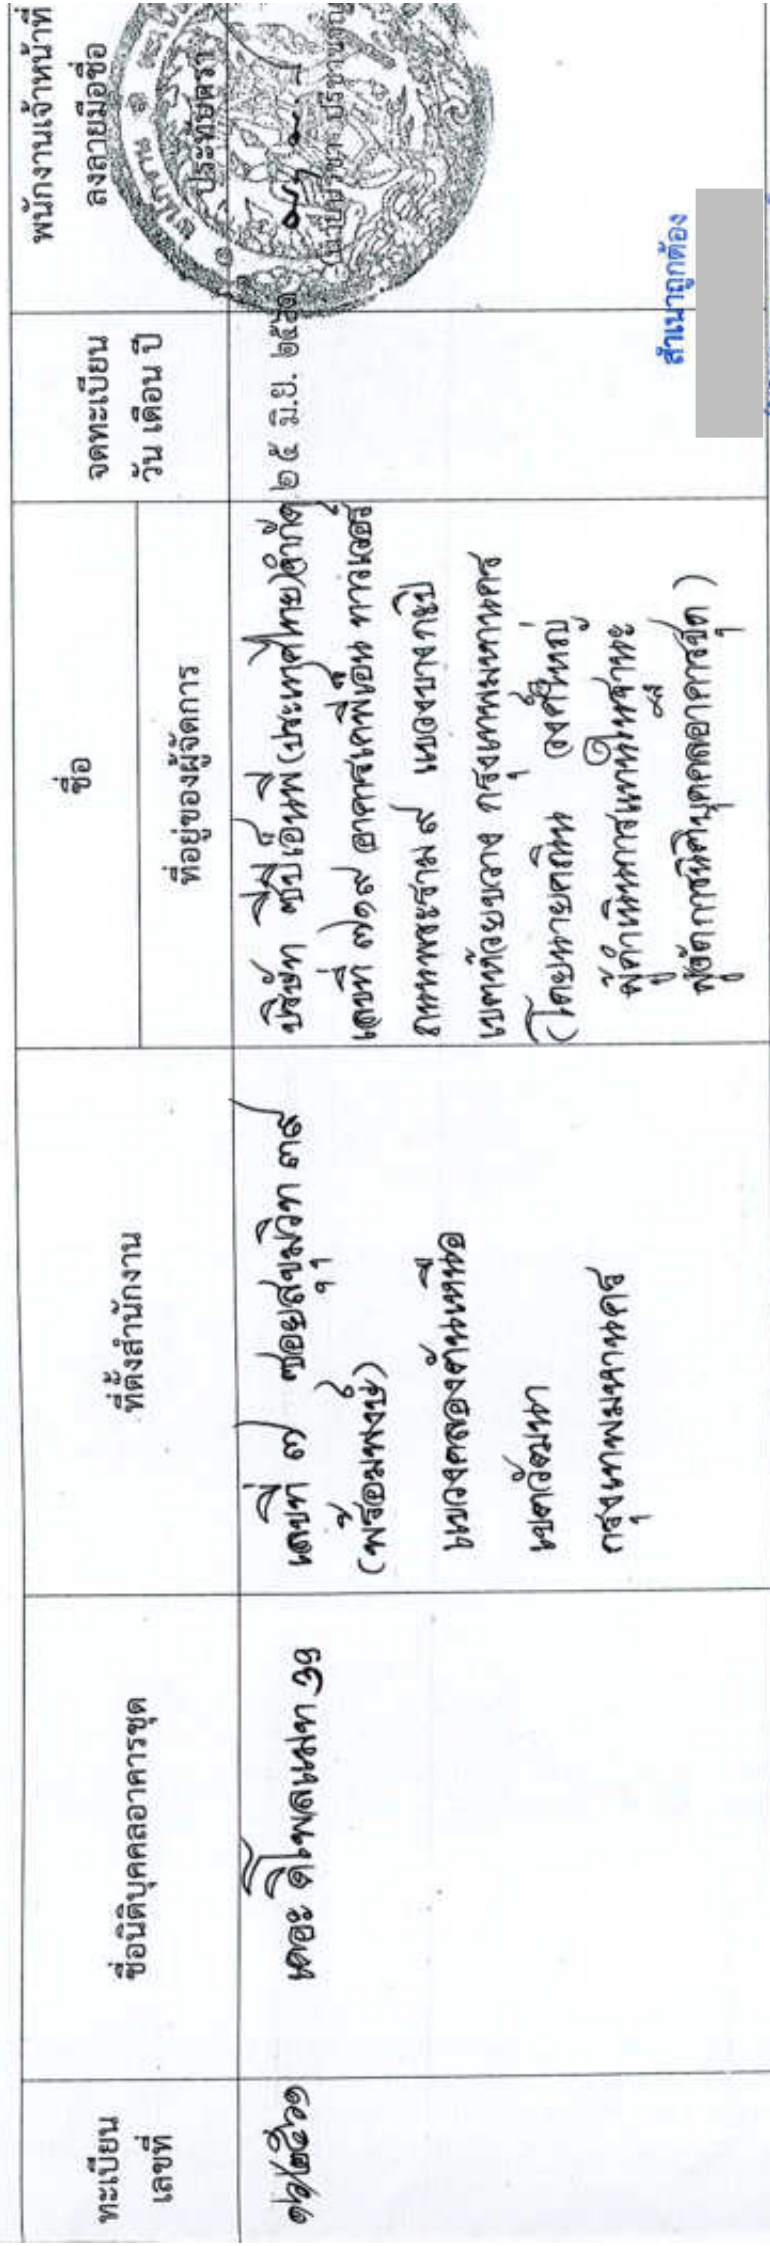 ทะเบียน
เลขที่
ชื่อนิติบุคคลอาคารชุด
ที่ตั้งสำนักงาน
ชื่อ
ที่อยู่ของผู้จัดการ
จดทะเบียน
วัน เดือน ปี
พนักงานเจ้าหน้าที่
ลงลายมือชื่อ
ประทับตรา
เดอะ ดิโพลแมท 39
เลขที่ ๗ ซอยสุขุมวิท ๓๙
(พร้อมพงษ์)
แขวงคลองตันเหนือ
เขตวัฒนา
กรุงเทพมหานคร
บริษัท ซีบีเอ็นพี (ประเทศไทย) จำกัด
เลขที่ ๗๑๙ อาคารเคพีเอ็น ทาวเวอร์
ถนนพระราม ๙ แขวงบางกะปิ
เขตห้วยขวาง กรุงเทพมหานคร
(โดยนายคณิน
ผู้ดำเนินการแทนในฐานะ
ผู้จัดการนิติบุคคลอาคารชุด)
๒๕ มิ.ย.
สำเนาถูกต้อง